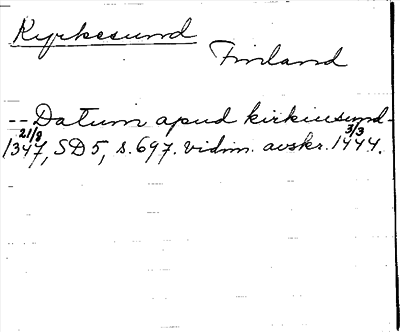 Kyrkesund
Finland
-- Datum apud kirkiusund -
21/8 3/3
1347, SD 5, s. 697. vidim. avskr. 1444.